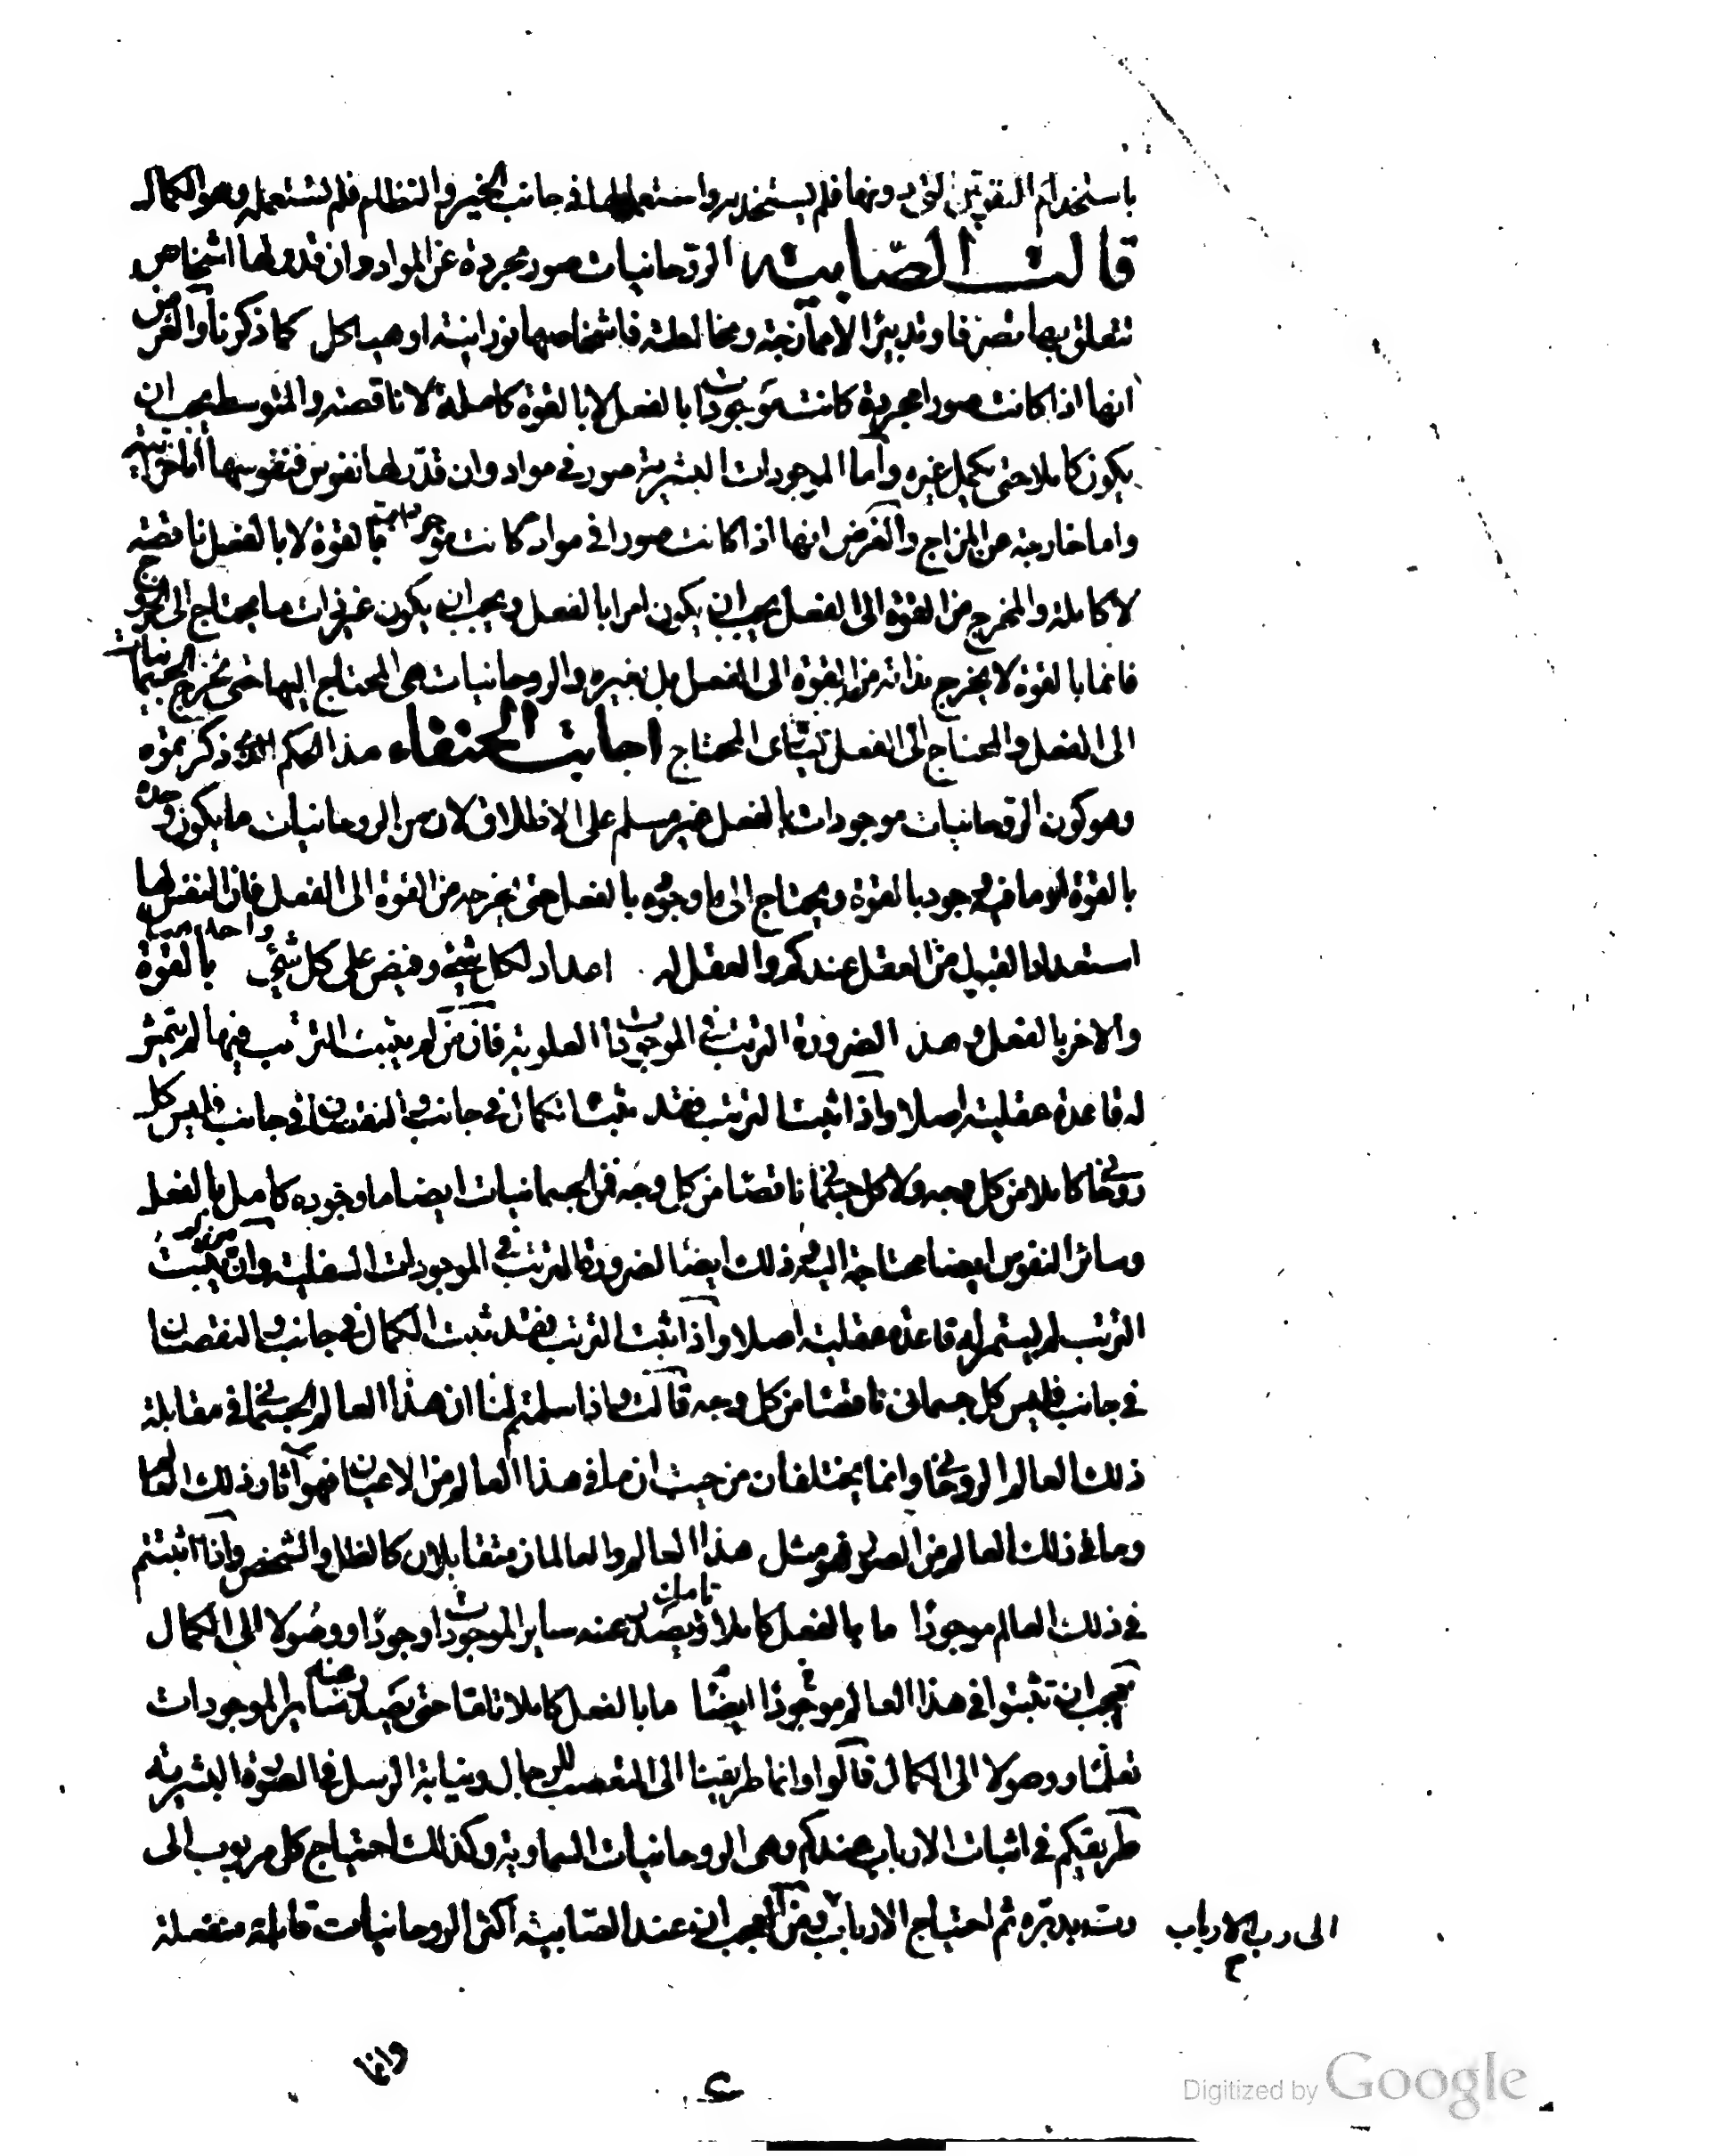 باستخدام النفوس التي دونها فلم يستخدمه واستعملها في جانب الخير والنظام فلم تستعمله وهو الكمال
قالت الصابية الروحانيات صور مجردة عن المواد وان قدر لها اشخاص
تتعلق بها تصرفا وتدبيرا لا ممازجة ومخالطة فاشخاصها نورانية او هياكل كما ذكرنا والفرض
انها اذا كانت صورا مجردة كانت موجودات بالفعل لا بالقوة كاملة لا ناقصة والمتوسط يجب ان
يكون كاملا حتى يكمل غيره واما الموجودات البشرية صور في مواد وان قدر لها نفوس فنفوسها اما مزاجية
واما خارجة عن المزاج والغرض انها اذا كانت صورا في مواد كانت موجودات بالقوة لا بالفعل ناقصة
لا كاملة والمخرج من القوة الى الفعل يجب ان يكون امرا بالفعل ويجب ان يكون غير ذات ما يحتاج الى الخروج
فان ما بالقوة لا يخرج بذاته من القوة الى الفعل بل بغيره والروحانيات هي المحتاج اليها حتى تخرج الجسمانيات
الى الفعل والمحتاج الى الفعل المحتاج اجابت الحنفاء هذا الحكم الذي ذكرتموه
وهو كون الروحانيات موجودات بالفعل غير مسلم على الاطلاق لان من الروحانيات ما يكون وجوده
بالقوة او ما فيه وجود بالقوة ويحتاج الى ما وجوده بالفعل حتى يخرجه من القوة الى الفعل فان النفس لها
استعداد القبول من العقل عندكم والعقل له اعداد لكل شيء وفيض على كل شيء واحدهما بالقوة
والاخر بالفعل وهذا لضرورة الترتب في الموجودات العلوية فان من لم يثبت الترتب فيها لم يتمش
له قاعدة عقلية اصلا واذا ثبت الترتب فقد ثبت الكمال في جانب والنقصان في جانب فليس كل
روحاني كاملا من كل وجه ولا كل جسماني ناقصا من كل وجه فمن الجسمانيات ايضا ما وجوده كامل بالفعل
وسائر النفوس ايضا محتاجة اليه وذلك ايضا لضرورة الترتب في الموجودات السفلية وان من لم يثبت
الترتب لم يستمر له قاعدة عقلية اصلا واذا ثبت الترتب فقد ثبت الكمال في جانب والنقصان
في جانب فليس كل جسماني ناقصا من كل وجه قالت واذا سلمتم لنا ان هذا العالم الجسماني في مقابلة
ذلك العالم الروحاني وانما يختلفان من حيث ان ما في هذا العالم من الاعيان فهو اثار ذلك العالم
وما في ذلك العالم من الصور فهو مثل هذا العالم والعالمان متقابلان كالظل والشخص واذا اثبتم
في ذلك العالم موجودا ما بالفعل كاملا تاما ويصدر عنه سائر الموجودات وجودا ووصولا الى الكمال
فيجب ان تثبتوا في هذا العالم موجودا ايضا ما بالفعل كاملا تاما حتى يصدر عنه سائر الموجودات
تعلما ووصولا الى الكمال قالوا وانما طريقنا الى التعصب للرجال ونيابة الرسل في الصورة البشرية
طريقكم في اثبات الارباب عندكم وهي الروحانيات السماوية وكذلك احتياج كل مربوب الى
رب يدبره ثم احتياج الارباب ومن العجب ان عند الصابية اكثر الروحانيات قابلة منفعلة
الى رب الارباب
وانما
Digitized by Google